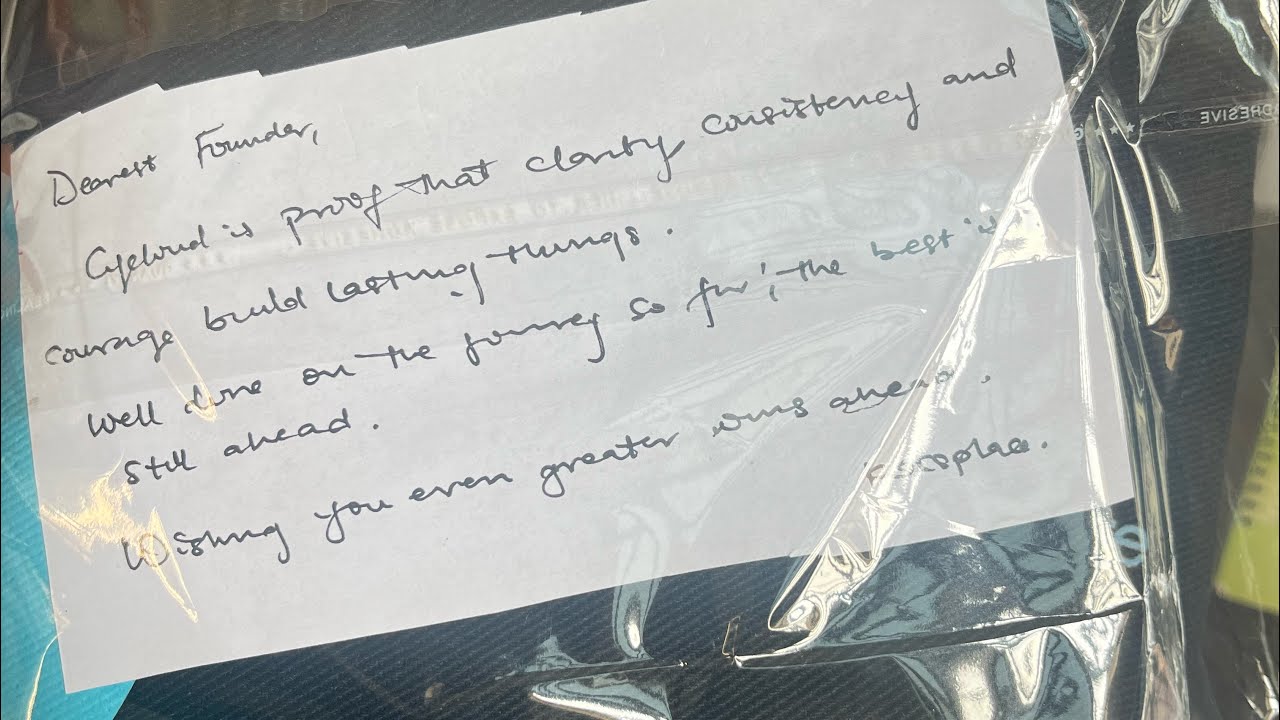 Dearest Founder,
Cycloud is proof that clarity consistency and
courage build lasting things.
Well done on the journey so far; the best is
still ahead.
Wishing you even greater wins ahead.
DRESIVE